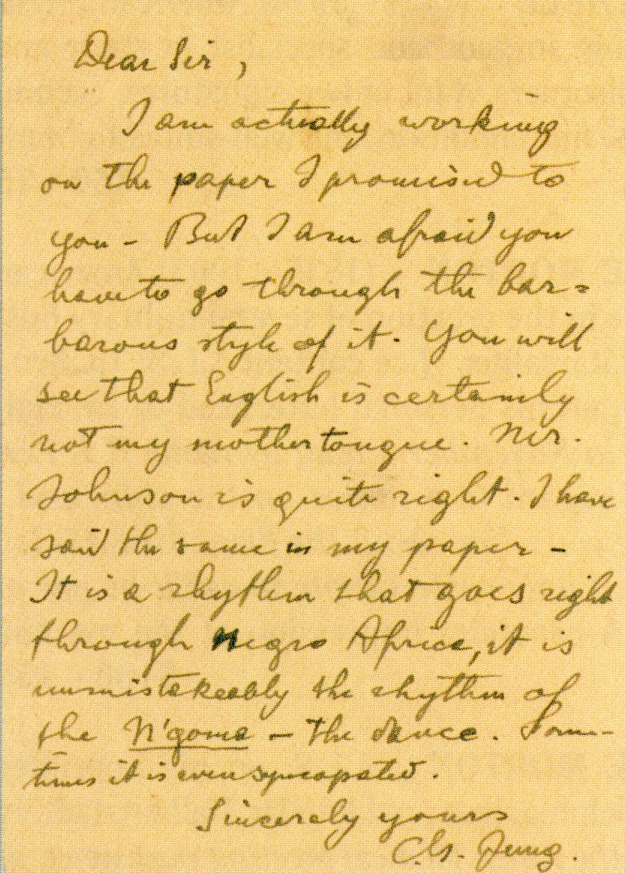 Dear Sir,
I am actually working
on the paper I promised to
you - But I am afraid you
have to go through the bar=
barous style of it. You will
see that English is certainly
not my mothertongue. Mr.
Johnson is quite right. I have
said the same in my paper -
It is a rhythm that goes right
through negro Africa, it is
unmistakeably the rhythm of
the N'goma - the dance. Some-
times it is even syncopated.
Sincerely yours
C.G. Jung.